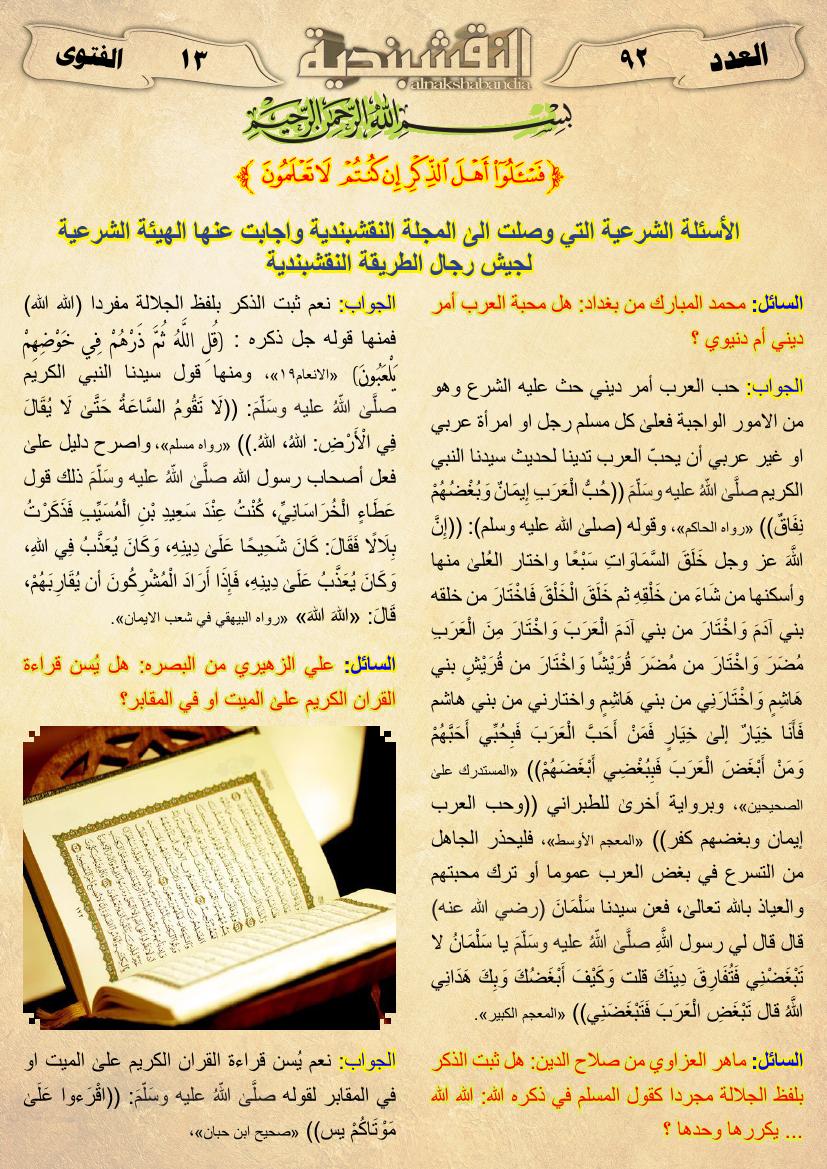 العدد
٩٢
النقشبندية
alnakshabandia
١٣
الفتوى
بسم الله الرحمن الرحيم
﴿فَسْـَٔلُوٓا۟ أَهْلَ ٱلذِّكْرِ إِن كُنتُمْ لَا تَعْلَمُونَ﴾
الأسئلة الشرعية التي وصلت الىٰ المجلة النقشبندية واجابت عنها الهيئة الشرعية
لجيش رجال الطريقة النقشبندية
السائل: محمد المبارك من بغداد: هل محبة العرب أمر
ديني أم دنيوي ؟
الجواب: حب العرب أمر ديني حث عليه الشرع وهو
من الامور الواجبة فعلىٰ كل مسلم رجل او امرأة عربي
او غير عربي أن يحبّ العرب تدينا لحديث سيدنا النبي
الكريم صلَّىٰ اللهُ عليه وسَلَّمَ ((حُبُّ الْعَرَبِ إِيمَانٌ وَبُغْضُهُمْ
نِفَاقٌ)) «رواه الحاكم»، وقوله (صلى الله عليه وسلم): ((إِنَّ
اللَّهَ عز وجل خَلَقَ السَّمَاوَاتِ سَبْعًا واختار العُلىٰ منها
وأسكنها من شَاءَ من خَلْقِهِ ثم خَلَقَ الْخَلْقَ فَاخْتَارَ من خلقه
بني آدَمَ وَاخْتَارَ من بني آدَمَ الْعَرَبَ وَاخْتَارَ مِنَ الْعَرَبِ
مُضَرَ وَاخْتَارَ من مُضَرَ قُرَيْشًا وَاخْتَارَ من قُرَيْشٍ بني
هَاشِمٍ وَاخْتَارَنِي من بني هَاشِمٍ واختارني من بني هاشم
فَأَنَا خِيَارٌ إلىٰ خِيَارٍ فَمَنْ أَحَبَّ الْعَرَبَ فَبِحُبِّي أَحَبَّهُمْ
وَمَنْ أَبْغَضَ الْعَرَبَ فَبِبُغْضِي أَبْغَضَهُمْ)) «المستدرك علىٰ
الصحيحين»، وبرواية أخرىٰ للطبراني ((وحب العرب
إيمان وبغضهم كفر)) «المعجم الأوسط»، فليحذر الجاهل
من التسرع في بغض العرب عموما أو ترك محبتهم
والعياذ بالله تعالىٰ، فعن سيدنا سَلْمَانَ (رضي الله عنه)
قال قال لي رسول اللَّهِ صلَّىٰ اللهُ عليه وسَلَّمَ يا سَلْمَانُ لا
تَبْغَضْنِي فَتُفَارِقَ دِينَكَ قلت وَكَيْفَ أَبْغَضُكَ وَبِكَ هَدَانِي
اللَّهُ قال تَبْغَضِ الْعَرَبَ فَتَبْغَضَنِي)) «المعجم الكبير».
السائل: ماهر العزاوي من صلاح الدين: هل ثبت الذكر
بلفظ الجلالة مجردا كقول المسلم في ذكره الله: الله الله
... يكررها وحدها ؟
الجواب: نعم ثبت الذكر بلفظ الجلالة مفردا (الله الله)
فمنها قوله جل ذكره : (قُلِ اللَّهُ ثُمَّ ذَرْهُمْ فِي خَوْضِهِمْ
يَلْعَبُونَ) «الانعام١٩»، ومنها قول سيدنا النبي الكريم
صلَّىٰ اللهُ عليه وسَلَّمَ: ((لَا تَقُومُ السَّاعَةُ حَتَّىٰ لَا يُقَالَ
فِي الْأَرْضِ: اللهُ، اللهُ.)) «رواه مسلم»، واصرح دليل علىٰ
فعل أصحاب رسول الله صلَّىٰ اللهُ عليه وسَلَّمَ ذلك قول
عَطَاءٍ الْخُرَاسَانِيِّ، كُنْتُ عِنْدَ سَعِيدِ بْنِ الْمُسَيِّبِ فَذَكَرْتُ
بِلَالًا فَقَالَ: كَانَ شَحِيحًا عَلَىٰ دِينِهِ، وَكَانَ يُعَذَّبُ فِي اللهِ،
وَكَانَ يُعَذَّبُ عَلَىٰ دِينِهِ، فَإِذَا أَرَادَ الْمُشْرِكُونَ أن يُقَارِبَهُمْ،
قَالَ: «اللهَ اللهَ» «رواه البيهقي في شعب الايمان».
السائل: علي الزهيري من البصره: هل يُسن قراءة
القران الكريم علىٰ الميت او في المقابر؟
الجواب: نعم يُسن قراءة القران الكريم علىٰ الميت او
في المقابر لقوله صلَّىٰ اللهُ عليه وسَلَّمَ: ((اقْرَءوا عَلَىٰ
مَوْتَاكُمْ يس)) «صحيح ابن حبان»،